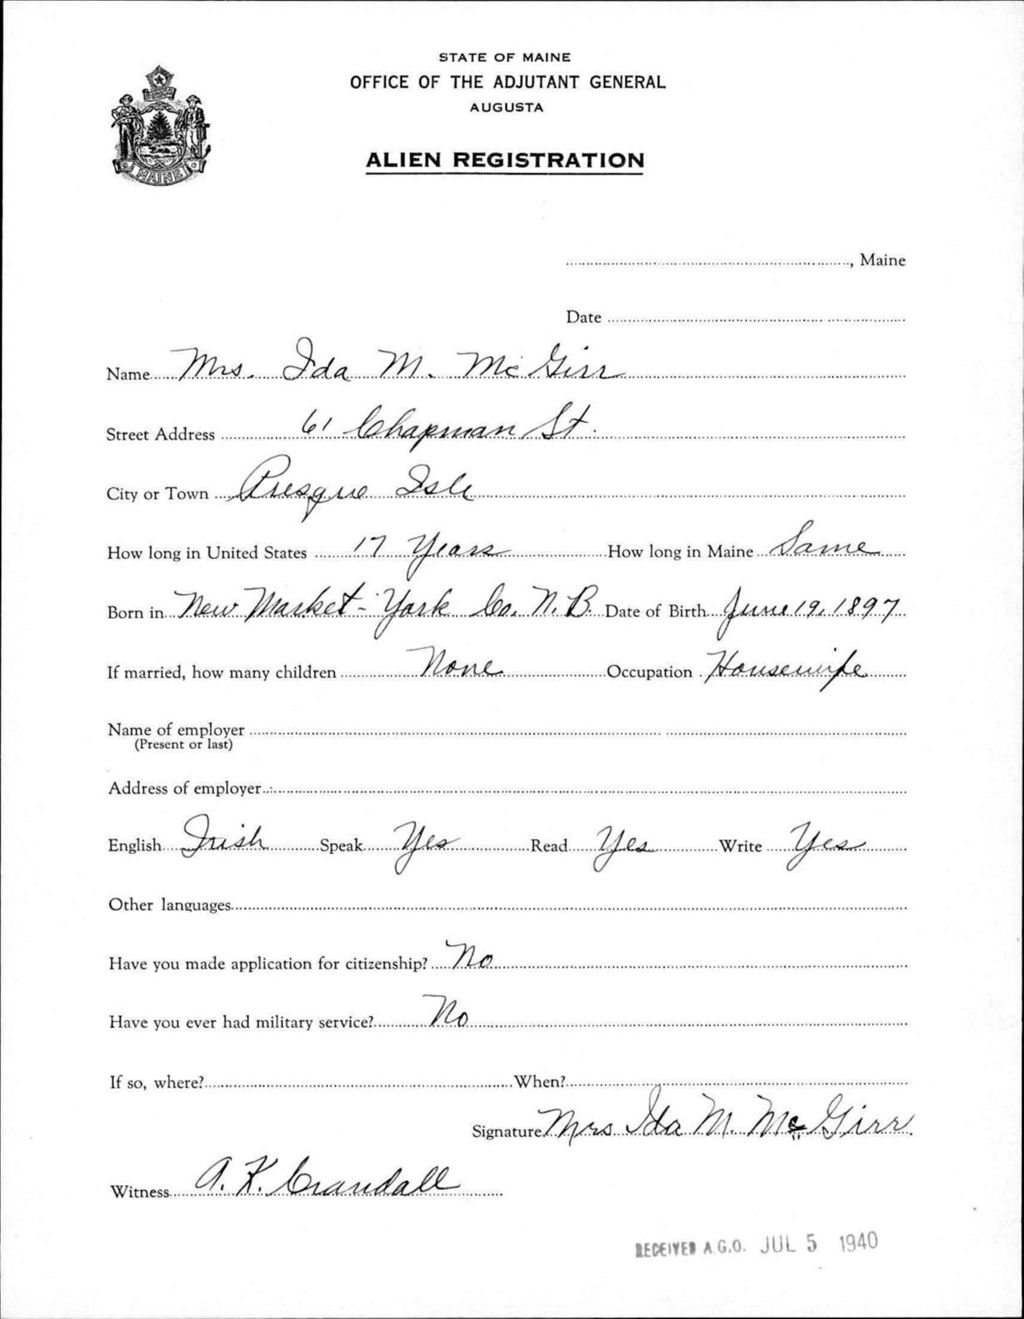 STATE OF MAINE
OFFICE OF THE ADJUTANT GENERAL
AUGUSTA
ALIEN REGISTRATION
MAINE
, Maine
Date
Name Mrs. Ida M. Mc Girr
Street Address 61 Chapman St.
City or Town Presque Isle
How long in United States 17 Years How long in Maine Same
Born in New Market - York Co. N.B. Date of Birth June 19, 1897
If married, how many children None Occupation Housewife
Name of employer
(Present or last)
Address of employer
English Irish Speak Yes Read Yes Write Yes
Other languages
Have you made application for citizenship? No
Have you ever had military service? No
If so, where? When?
Signature Mrs Ida M. Mc Girr.
Witness A. K. Crandall
RECEIVED A.G.O. JUL 5 1940